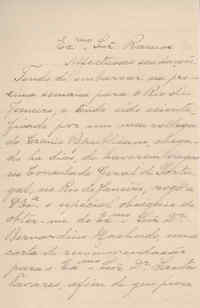 Exmo Snr. Ramos
Affectuosas saudações
Tendo de embarcar na pro-
xima semana para o Rio de
Janeiro, e tendo sido scienti-
ficado por um meu collega
do Centro Republicano, chega-
do ha dias, de haverem vagas
no Consulado Geral de Portu-
gal, no Rio de Janeiro, rogo a
V. Exa. o especial obsequio de
obter-me do Exmo Snr. Dr.
Bernardino Machado, uma
carta de recommendação
para o Exmo Snr. Dr.
Tavares, afim de que possa